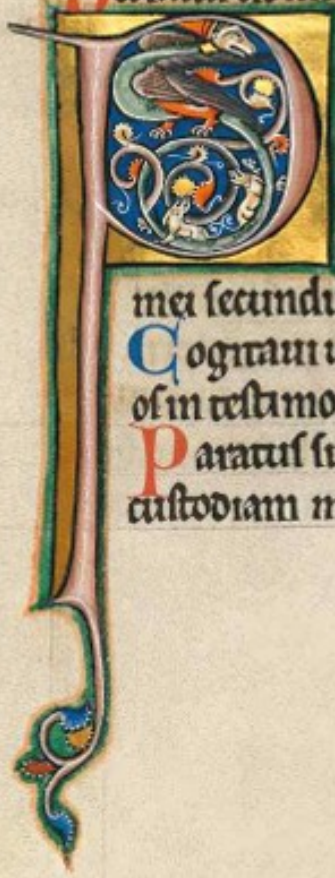 P
mei secundu
Cogitaui u
os in testimo
Paratus su
custodiam m